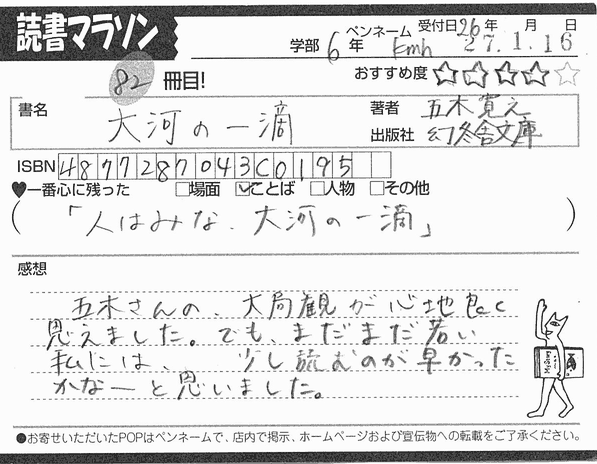 読書マラソン
学部 6年 ペンネーム kmh 受付日 26年 月 日
27.1.16
82 冊目! おすすめ度 ★★★★☆
書名 大河の一滴 著者 五木寛之
出版社 幻冬舎文庫
ISBN 4877287043C0195
♥一番心に残った □場面 ☑ことば □人物 □その他
(「人はみな、大河の一滴」)
感想
五木さんの、大局観が心地良く
思えました。でも、まだまだ若い
私には、 少し読むのが早かった
かなーと思いました。
●お寄せいただいたPOPはペンネームで、店内で掲示、ホームページおよび宣伝物への転載をご了承ください。